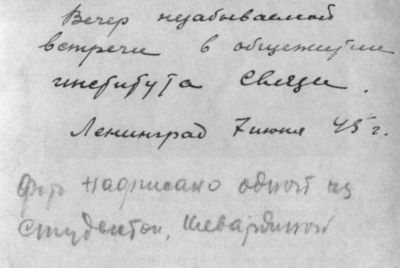 Вечер незабываемой
встречи в общежитии
института связи.
Ленинград 7 июня 45 г.
Фото надписано одной из
студенток, Шевардиной